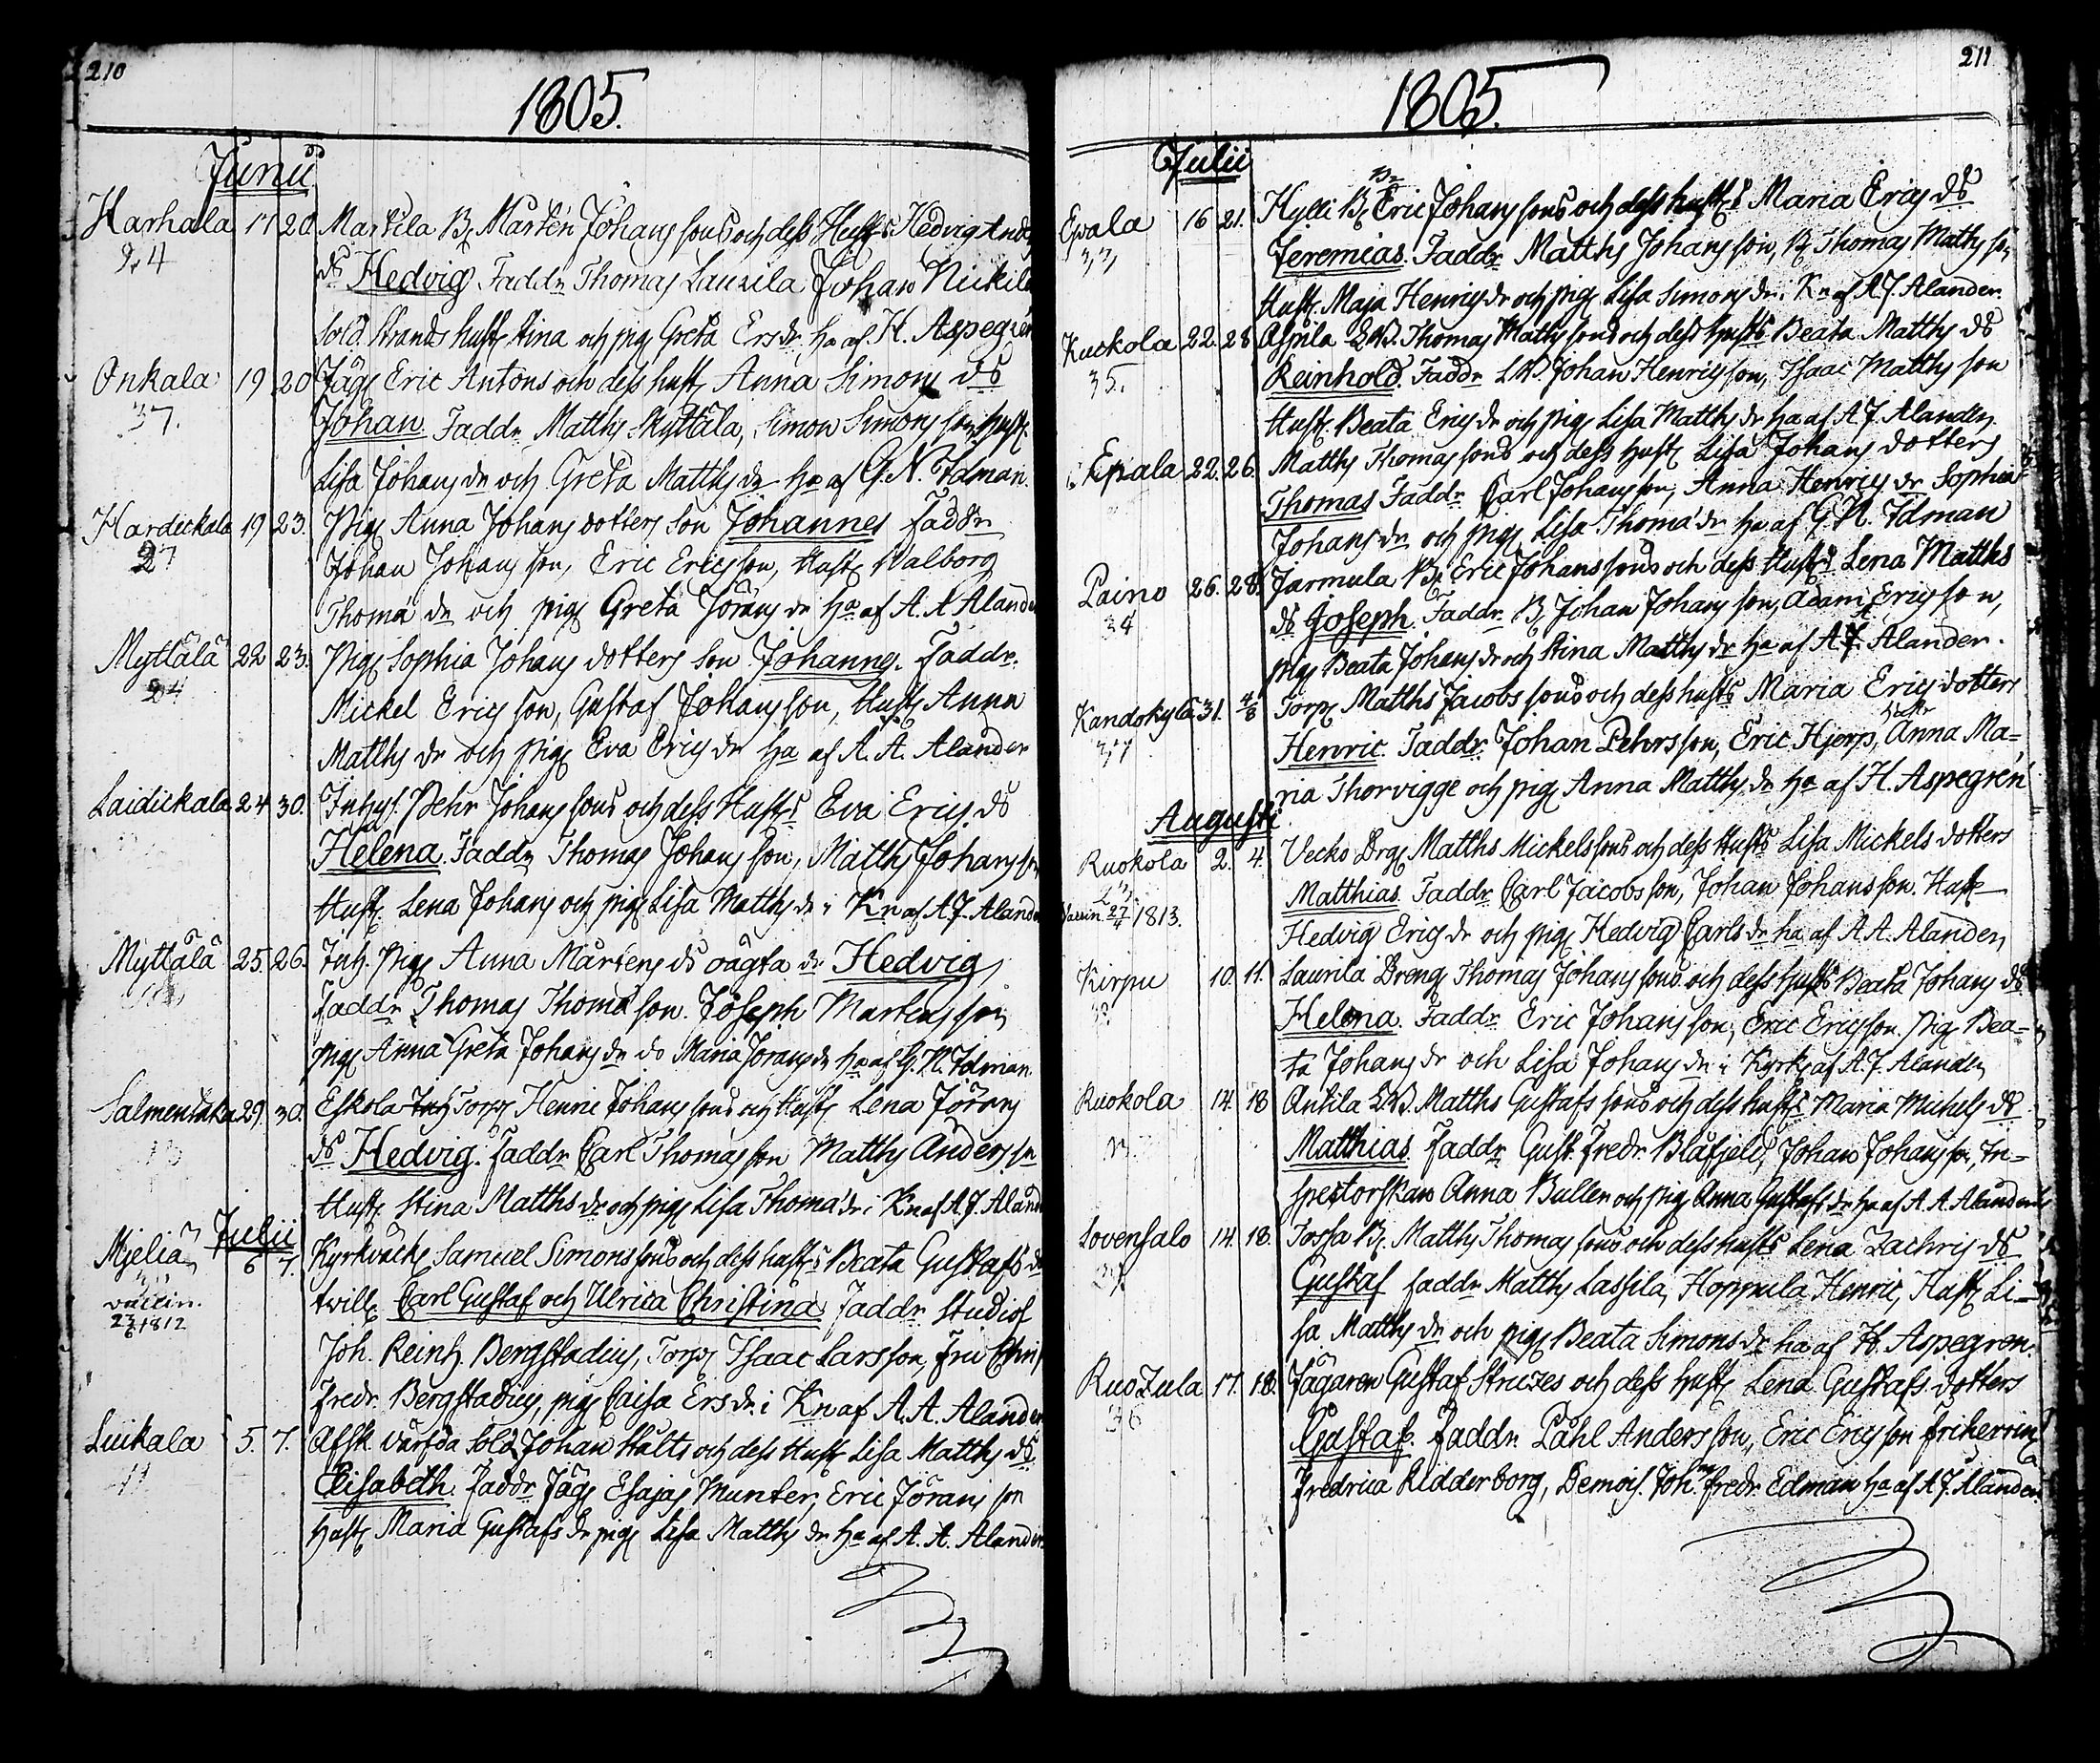 210
1805.
Junii
Harhala 17 20 Martila B: Mårten Johans sons och dess Hustrs Hedvig Anders
24 ds Hedvig Faddr Thomas Laurila Johan Nickila
Sold. Strands hustr Stina och pig Greta Ersdr, ha af H. Aspegrén
Onkala 19 20 Jäg Eric Antons och dess hustr Anna Simons ds
37. Johan. Faddr Matths Mÿttälä, Simon Simons son, hustr
Lisa Johans dr och Greta Matths dr ha af G. N. Idman.
Hardickala 19 23. Pig Anna Johans dotters son Johannes faddr
27 Johan Johans son, Eric Erics son, Hustr Walborg
Thoma dr och pig Greta Jörans dr ha af A. A Alander
Myttälä 22 23. Pig Sophia Johans dotters son Johannes. Faddr.
24 Mickel Erics son, Gustaf Johans son, Hustr Anna
Matths dr och pig Eva Erics dr ha af A. A. Alander
Laidickala 24 30. Inhys. Pehr Johans sons och dess Hustrs Eva Erics ds
Helena. Faddr Thomas Johans son, Matths Johans son
Hustr Lena Johans och pig Lisa Matths dr i Kn af A. J. Alander
Myttälä 25. 26. Inh. Pig Anna Mårtens ds oägta dr Hedvig
Faddr Thomas Thoma son. Joseph Martens son
pig Anna Greta Johans dr do Maria Jörans dr ha af G. N. Idman.
Salmentaka 29. 30. Eskola Torp Henric Johans sons och Hustr Lena Jörans
ds Hedvig. Faddr Carl Thomas son Matths Anders sn
Hustr Stina Matths dr och pig Lisa Thoma dr i Kn af A. J. Aland
Julii
Mjeliä 6 7. Kyrkväckt Samuel Simons sons och dess hustrs Beata Gustafs dr
vaccin. twill. Carl Gustaf och Ulrica Christina Faddr Studios
23/6 1812 Joh. Reinh. Bergstadius, Torp Isaac Larsson, Fru Chris
Fredr. Bergstadius, pig Caisa Ers dr i Kn af A. A. Alander
Luikala 5. 7. Afsk. värfda Sold Johan Stålts och dess Hustr Lisa Matths ds
Elisabeth. Faddr Jäg Esajas Munter, Eric Jörans son
Hustr Maria Gustafs dr pig Lisa Matths dr ha af A. A. Alander.
211
1805.
Julii
Epala 16 21. Hylli B: Eric Johans sons och dess hustrs Maria Erics ds
33 Jeremias. Faddr Matths Johans son, B: Thomas Maths son
Hustr Maja Henrics dr och pig Lisa Simons dr i Kn af A. J. Alander.
Kuckola 22. 28 Assila LB. Thomas Maths sons och dess hustrs Beata Matths ds
35. Reinhold. Faddr LB. Johan Henrics son, Isaac Matths son
Hustr Beata Erics dr och pig Lisa Matths dr ha af A. J. Alander
Epala 22. 26. Matths Thomas sons och dess hustr Lisa Johans dotters
Thomas Faddr Carl Johans son, Anna Henrics dr Sophia
Johans dr och pig Lisa Thoma dr ha af G. N. Idman
Paino 26. 28. Jarmula B: Eric Johans sons och dess Hustrs Lena Matths
34 ds Joseph. Faddr. B. Johan Johans son, Adam Erics son,
pig Beata Johans dr och Stina Matths dr ha af A. J. Alander.
Kandokylä 31. 4/8 Torp Matths Jacobs sons och dess hustrs Maria Erics dotters
37 Henric. Faddr. Johan Pehrs son, Eric Hjerp, Hustr Anna Ma=
ria Thorvigge och pig Anna Matths dr ha af H. Aspegrén
Augusti
Ruokola 2. 4. Vecko Drg Matths Mickels sons och dess Hustrs Lisa Mickels dotters
23 Matthias. Faddr Carl Jacobs son, Johan Johans son. Hustr
Vaccin. 27/4 1813. Hedvig Erics dr och pig Hedvig Carls dr ha af A A. Alander
Kirpu 10. 11. Laurila Dreng Thomas Johans sons och dess hustrs Beata Johans ds
Helena. Faddr Eric Johans son, Eric Ericsson. Pig Bea=
ta Johans dr och Lisa Johans dr i Kyrk af A. J. Alander
Ruokola 14. 18 Antila LB. Matths Gustafs sons och dess hustrs Maria Michels ds
Matthias. Faddr Gust. Fredr. Blåfjeld, Johan Johans son, In=
spectorskan Anna Bullen och pig Anna Gustafs dr ha af A. A. Alander
Sovensalo 14. 18. Jossa B: Matths Thomas sons och dess hustrs Lena Zachris ds
Gustaf faddr Matths Lassila, Hoppula Henric, Hustr Li=
sa Matths dr och pig Beata Simons dr ha af H. Aspegren.
Ruozula 17. 18. Jägaren Gustaf Struzes och dess Hustr Lena Gustafs dotters
36 Gustaf. Faddr. Påhl Andersson, Eric Ericsson Friherrin
Fredrica Ridderborg, Demois. Joh. Fredr. Edman ha af A. J. Alander.